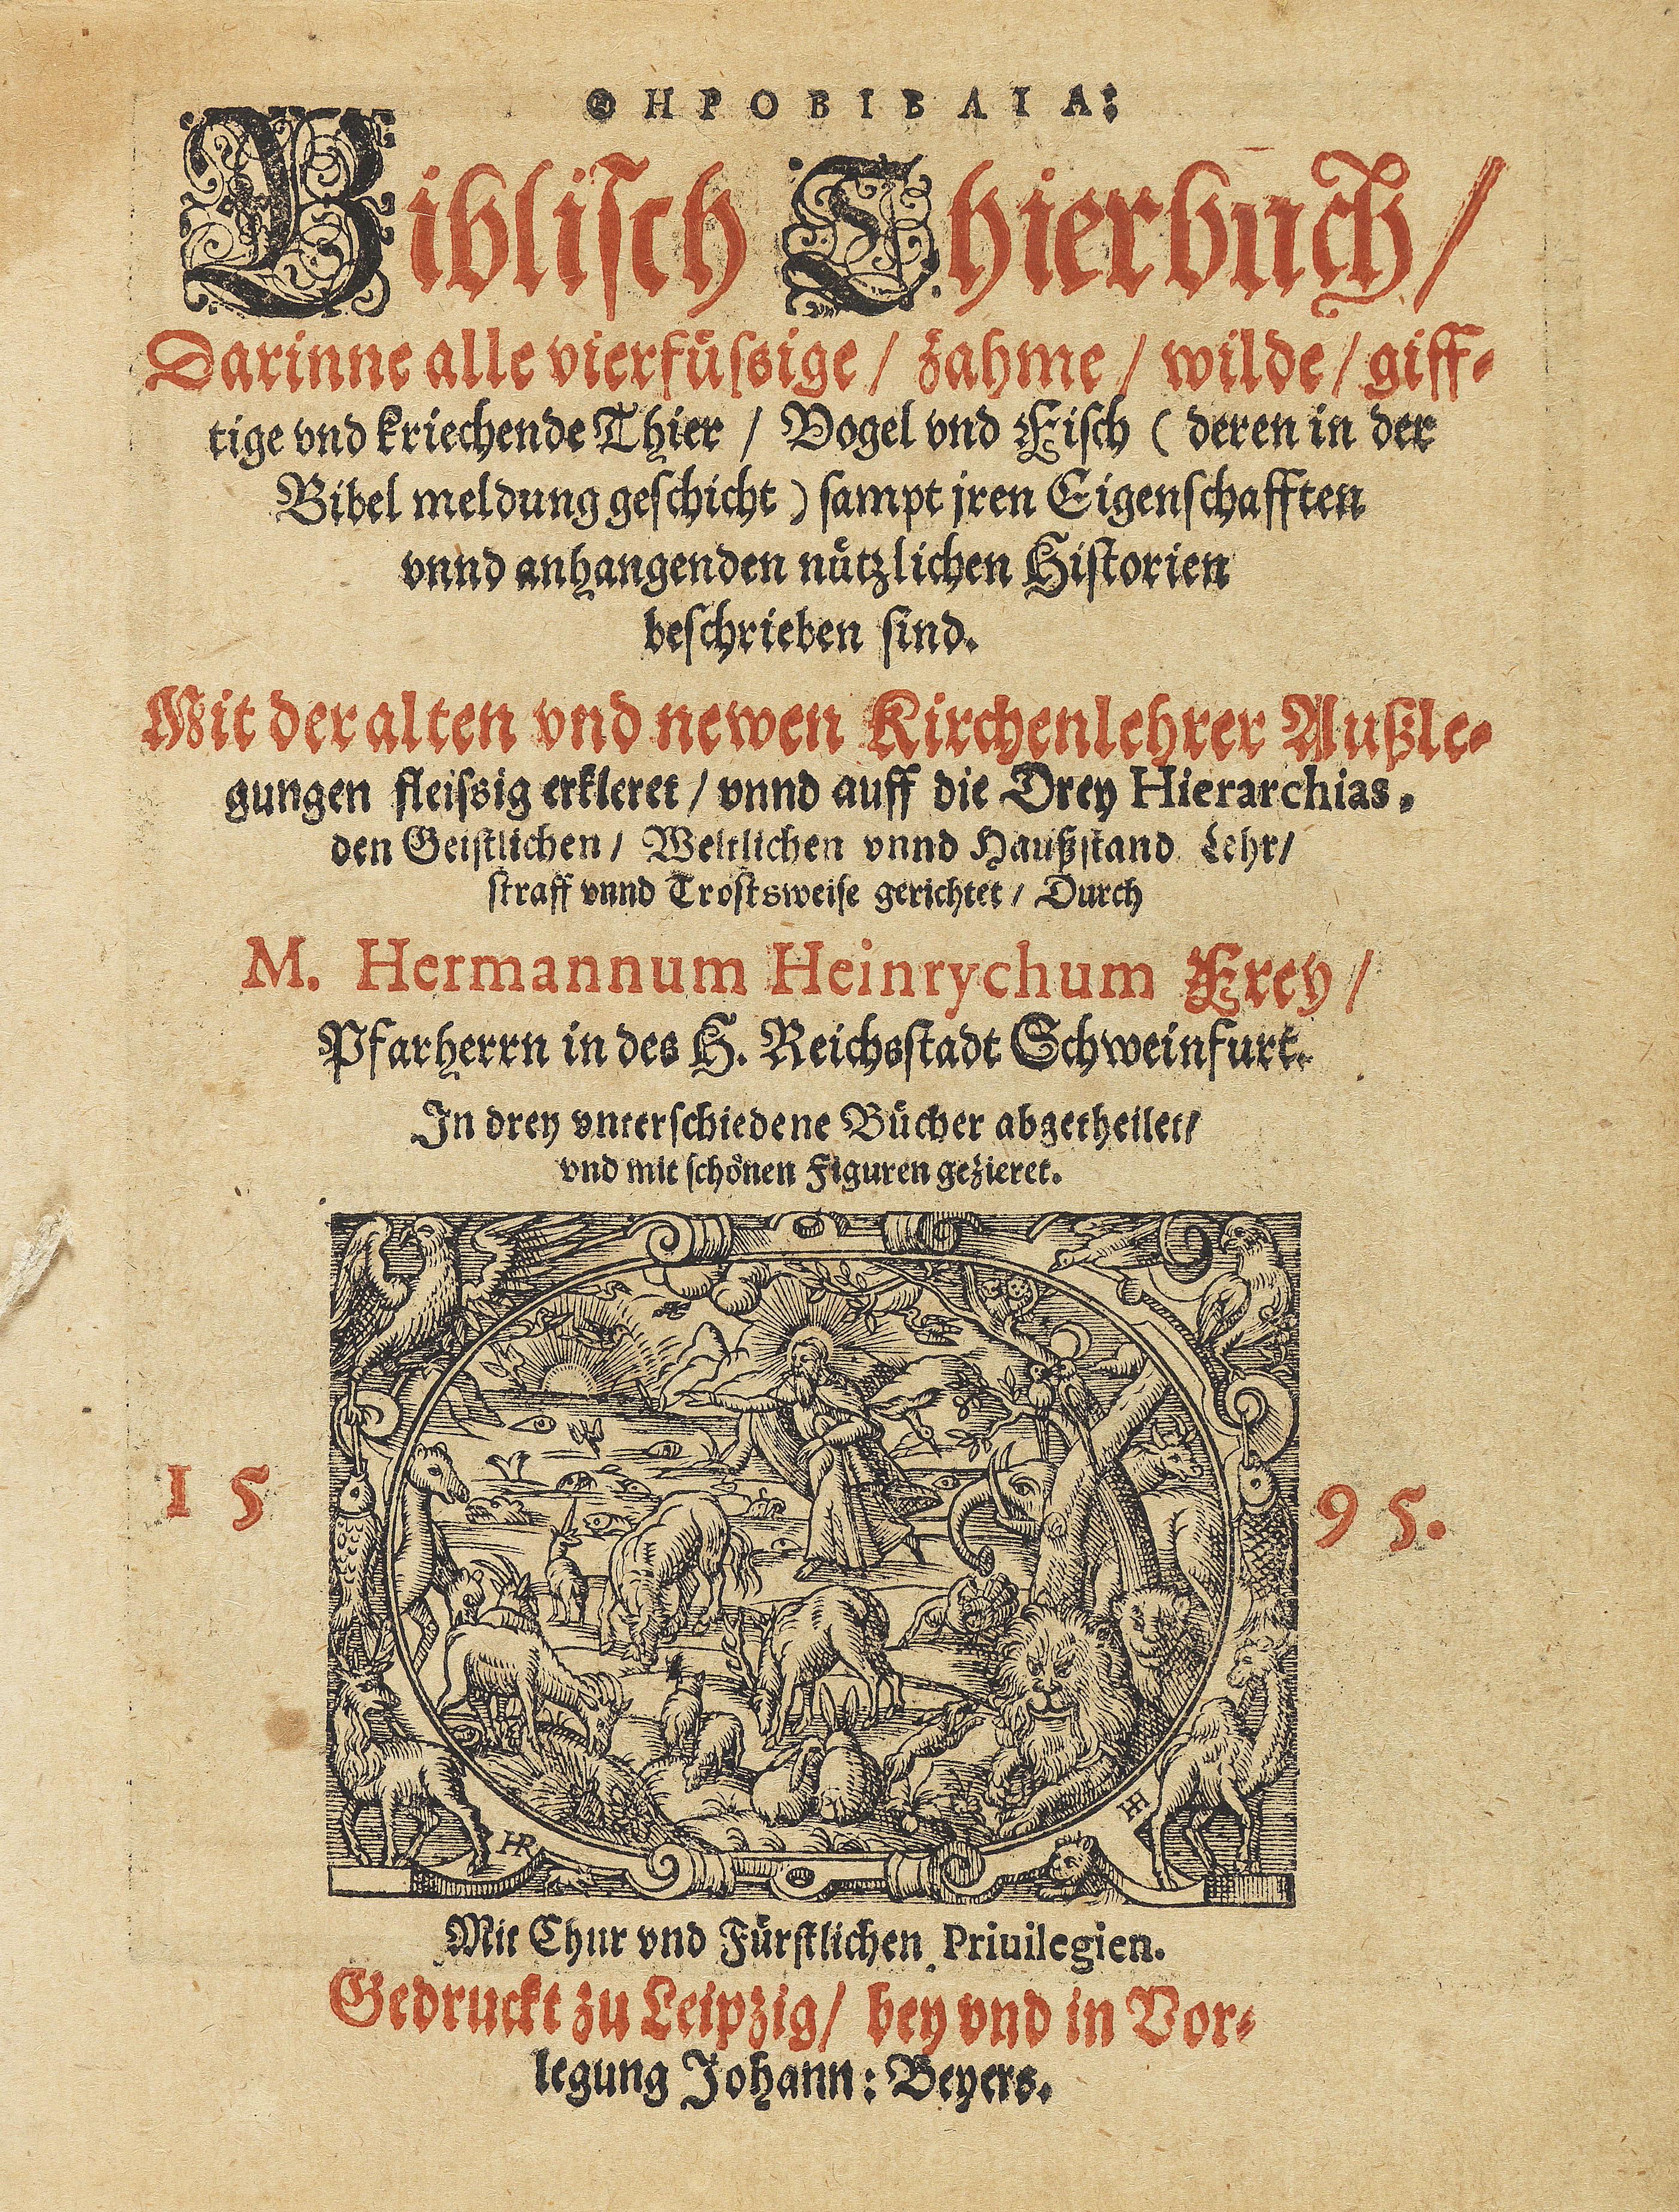 ΘΗΡΟΒΙΒΛΙΑ:
Bibliſch Thierbuch/
Darinne alle vierfüſsige / zahme / wilde / giff-
tige vnd kriechende Thier / Vogel vnd Fiſch ( deren in der
Bibel meldung geſchicht ) ſampt jren Eigenſchafften
vnnd anhangenden nützlichen Hiſtorien
beſchrieben ſind.
Mit der alten vnd newen Kirchenlehrer Außle-
gungen fleiſsig erkleret / vnnd auff die Drey Hierarchias.
den Geiſtlichen / Weltlichen vnnd Haußſtand Lehr/
ſtraff vnnd Troſtsweiſe gerichtet / Durch
M. Hermannum Heinrychum Frey /
Pfarherrn in des H. Reichsſtadt Schweinfurt.
In drey vnterſchiedene Bücher abgetheilet/
vnd mit ſchönen Figuren gezieret.
15 95.
HR HH
Mit Chur vnd Fürſtlichen Priuilegien.
Gedruckt zu Leipzig/ bey vnd in Vor-
legung Johann: Beyers.